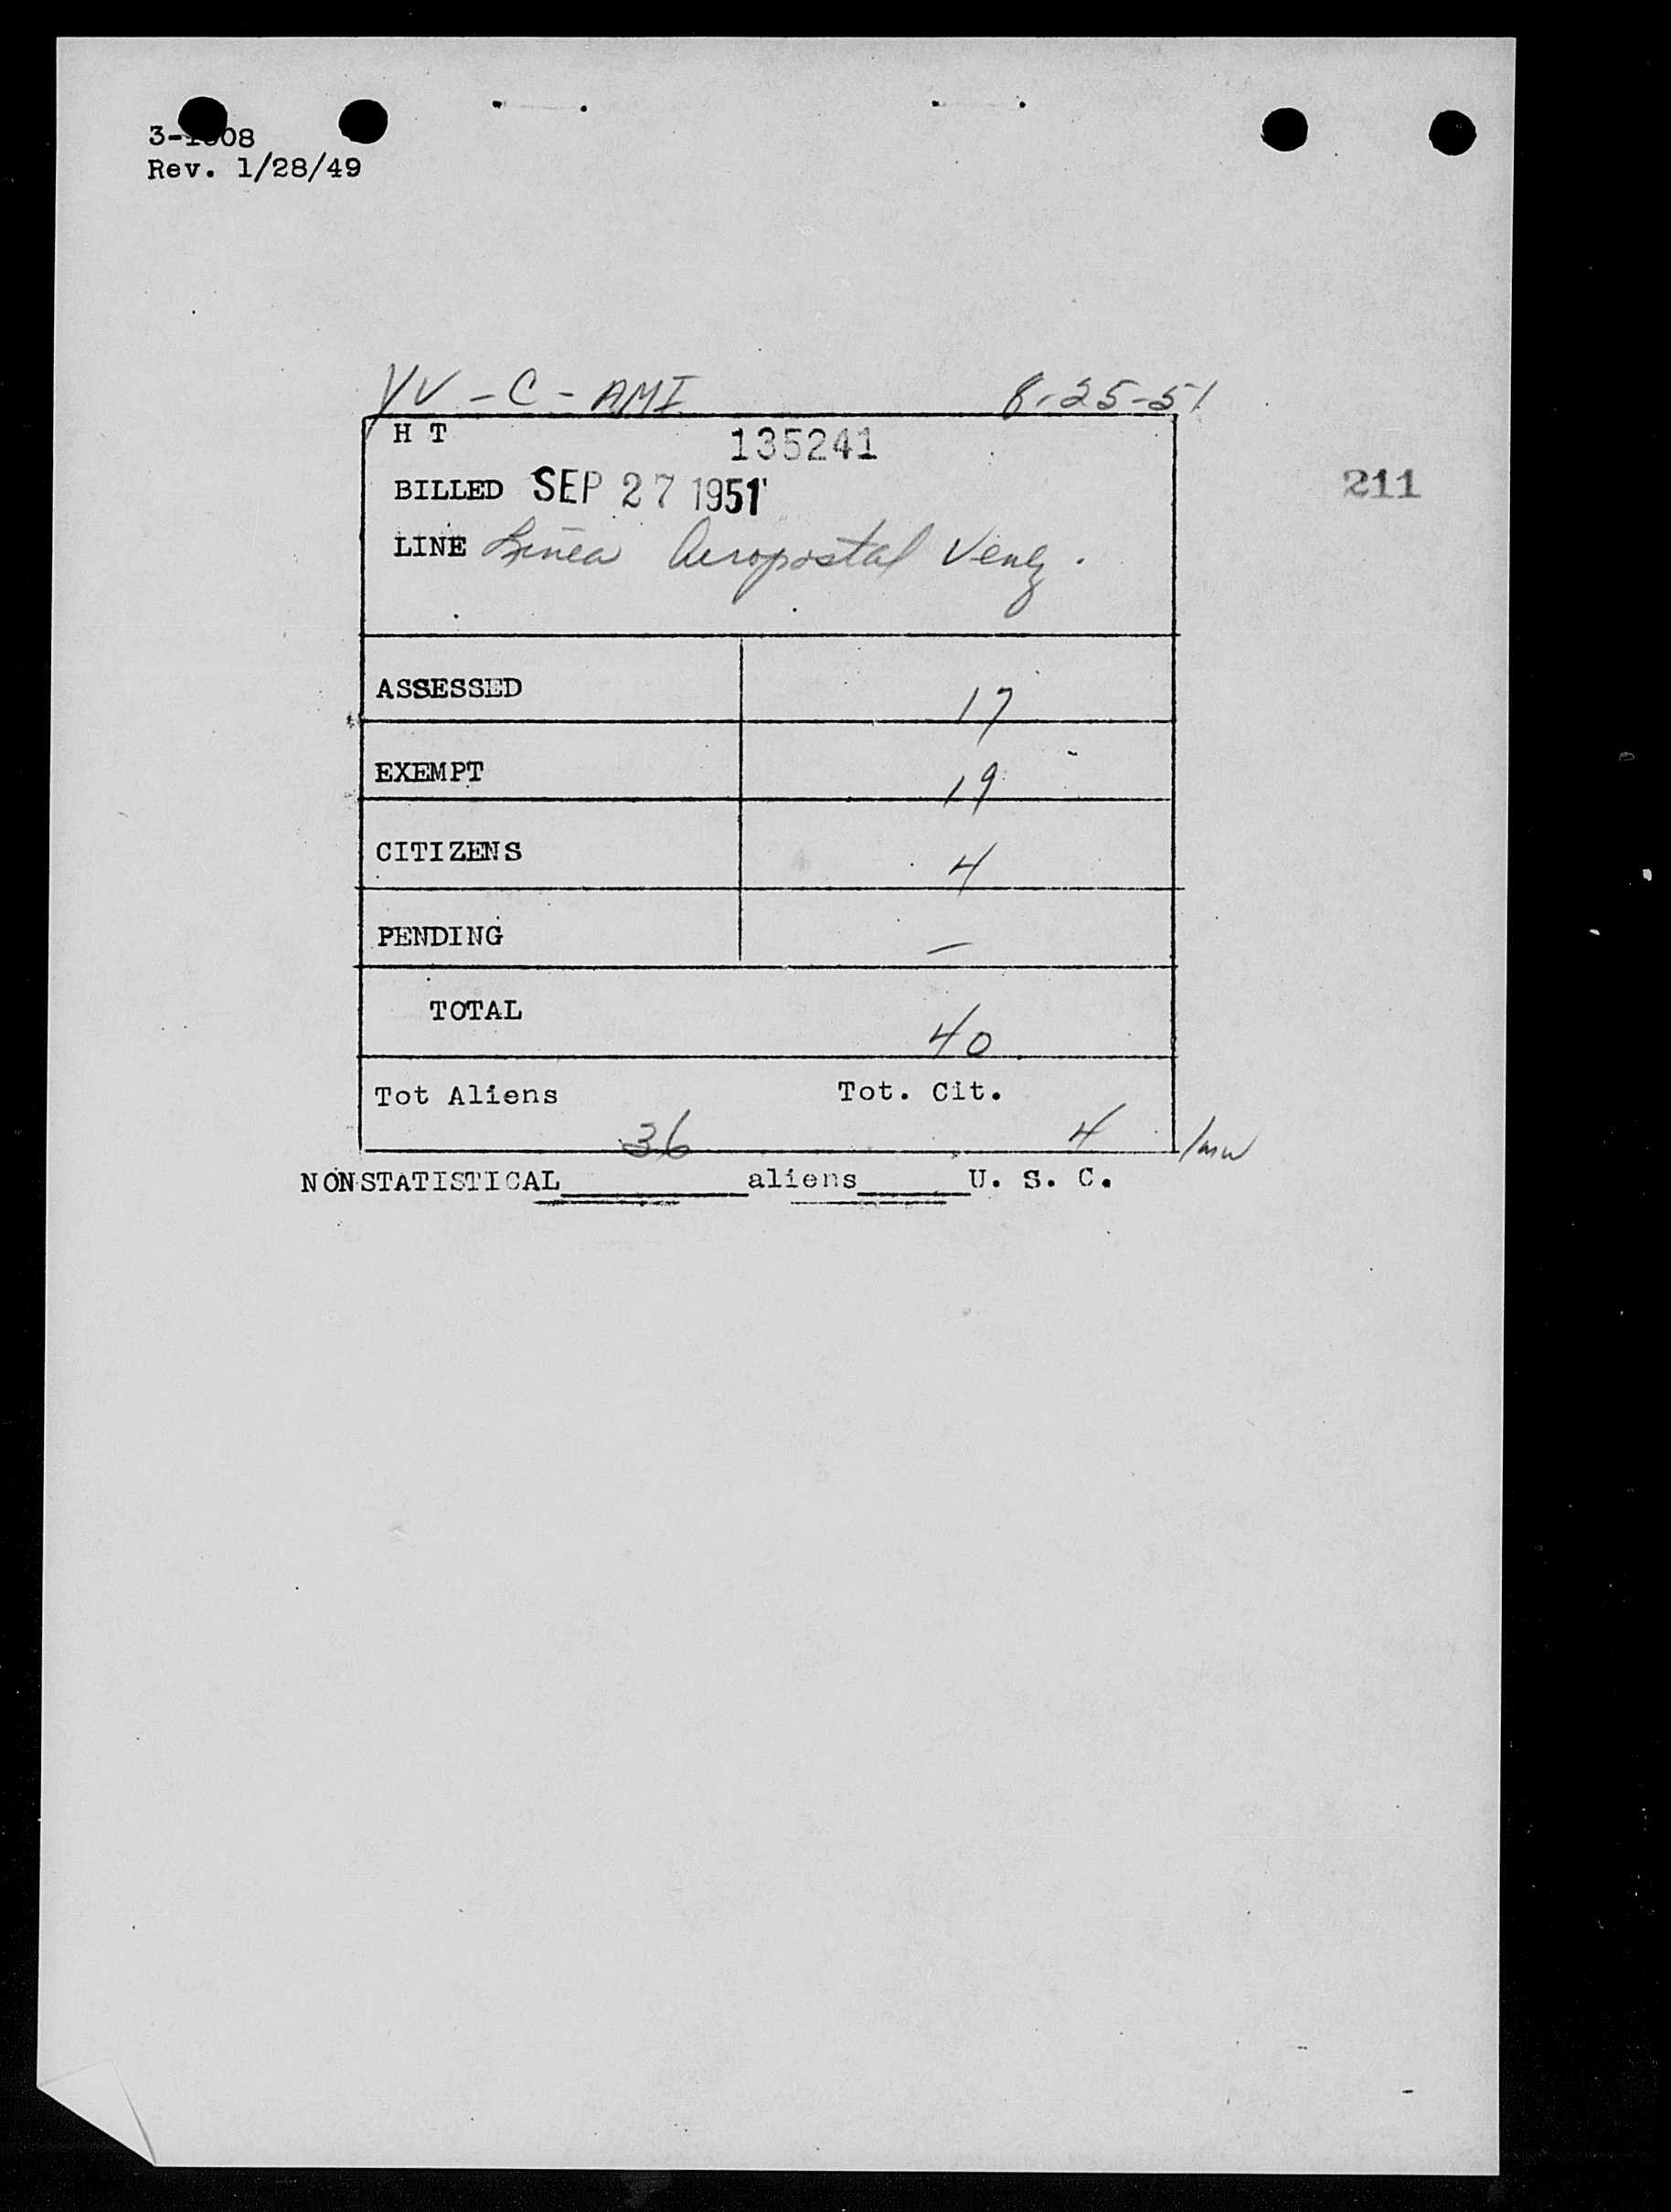 Rev. 1/28/49
YV - C - AMI 8-25-51
H T 135241
BILLED SEP 27 1951
211
LINE Linea Aeropostal Venez.
ASSESSED 17
EXEMPT 19
CITIZENS 4
PENDING —
TOTAL 40
Tot Aliens Tot. Cit.
36 4 /mw
NONSTATISTICAL________aliens_____U. S. C.